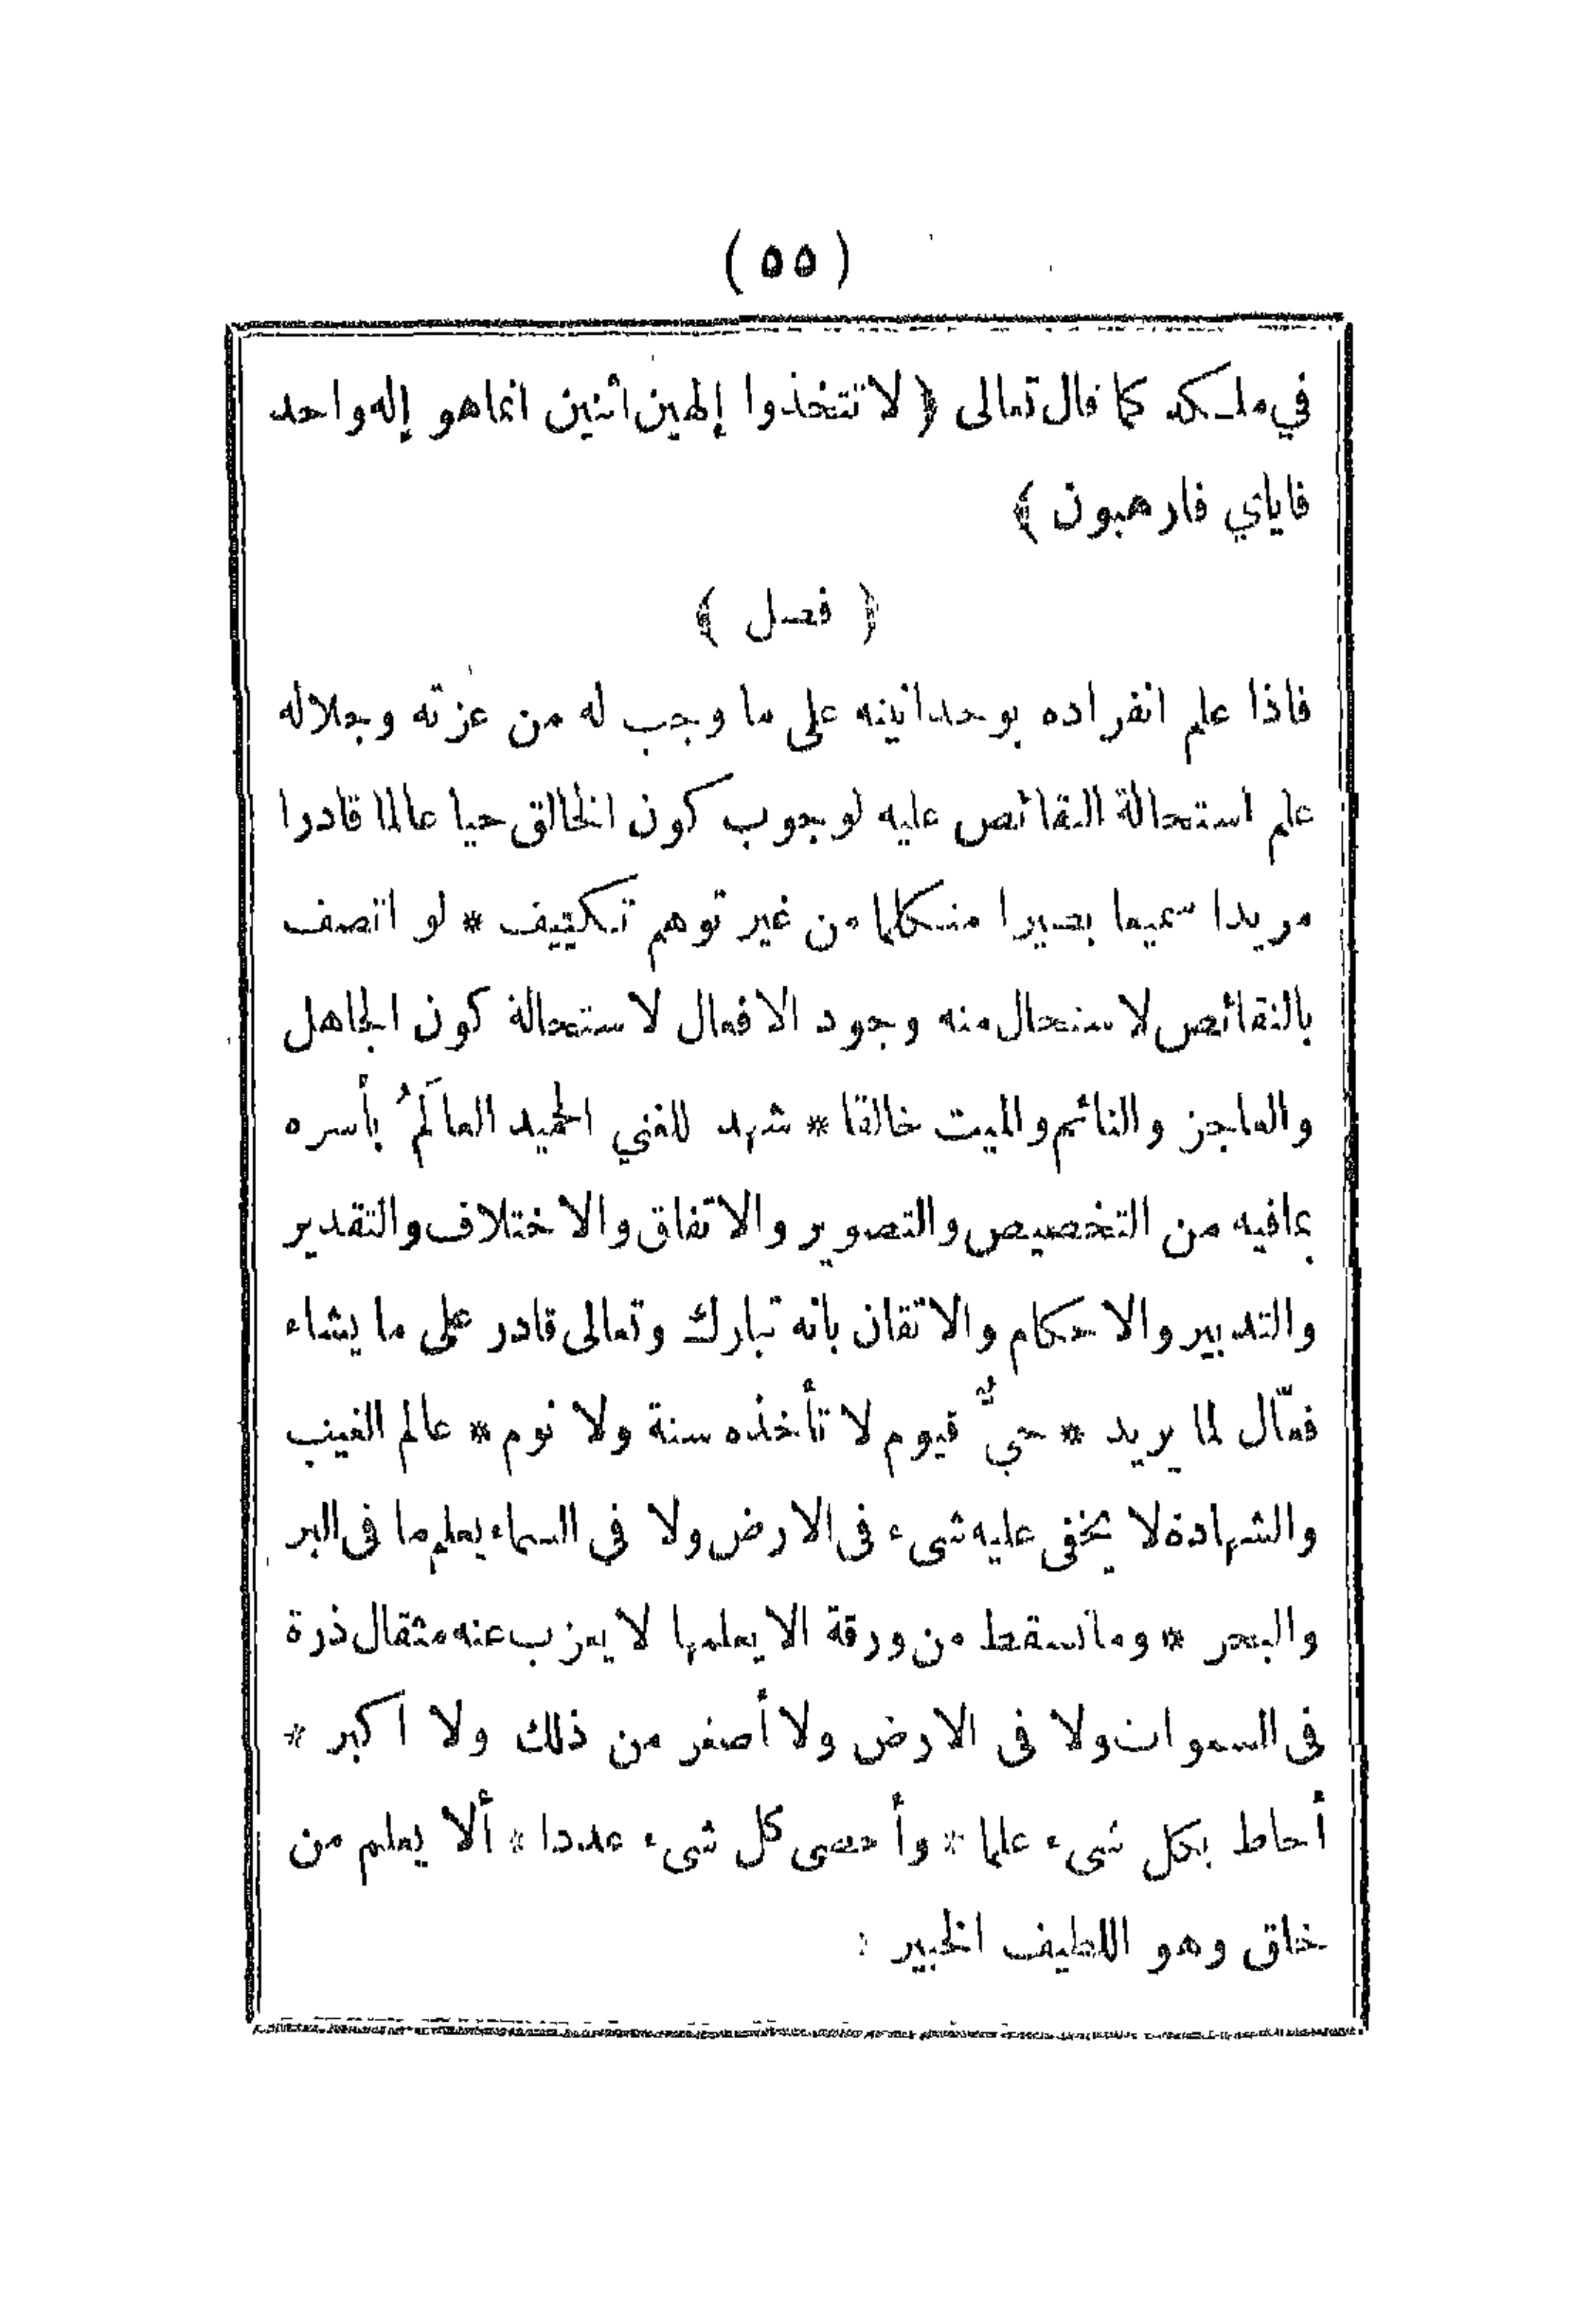 ( ٥٥ )
في ملكه كما قال تعالى ﴿ لا تتخذوا إلهين اثنين انما هو إله واحد
فاياي فارهبون ﴾
﴿ فصل ﴾
فاذا علم انفراده بوحدانيته على ما وجب له من عزته وجلاله
علم استحالة النقائص عليه لوجوب كون الخالق حيا عالما قادرا
مريدا سميعا بصيرا متكلما من غير توهم تكييف * لو اتصف
بالنقائص لاستحال منه وجود الافعال لاستحالة كون الجاهل
والعاجز والنائم والميت خالقا * شهد للغني الحميد العالَمُ بأسره
بما فيه من التخصيص والتصوير والاتفاق والاختلاف والتقدير
والتدبير والاحكام والاتقان بانه تبارك وتعالى قادر على ما يشاء
فعّال لما يريد * حيٌّ قيوم لا تأخذه سنة ولا نوم * عالم الغيب
والشهادة لا يخفى عليه شىء فى الارض ولا في السماء يعلم ما فى البر
والبحر * وما تسقط من ورقة الا يعلمها لا يعزب عنه مثقال ذرة
فى السموات ولا فى الارض ولا أصغر من ذلك ولا اكبر *
أحاط بكل شىء علما * وأحصى كل شىء عددا * ألا يعلم من
خلق وهو اللطيف الخبير :